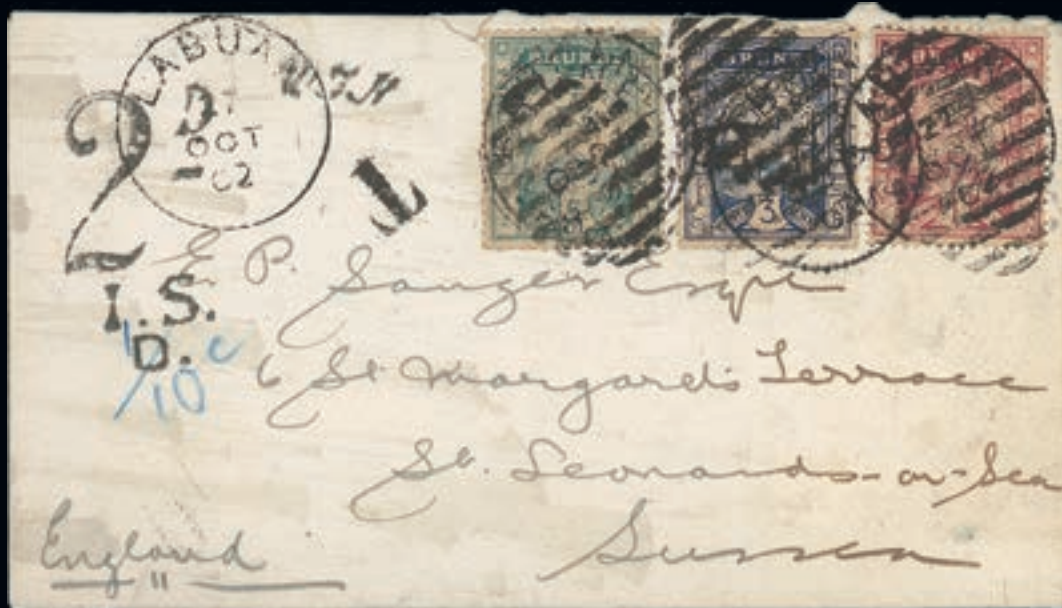 LABUAN
OCT
02
2
T
I. S.
D.
10 c
BRUNEI
BRUNEI
3
BRUNEI
E. P. Sanger Esqre
6 St Margards Terrace
St. Leonards-on-Sea
Sussex
England